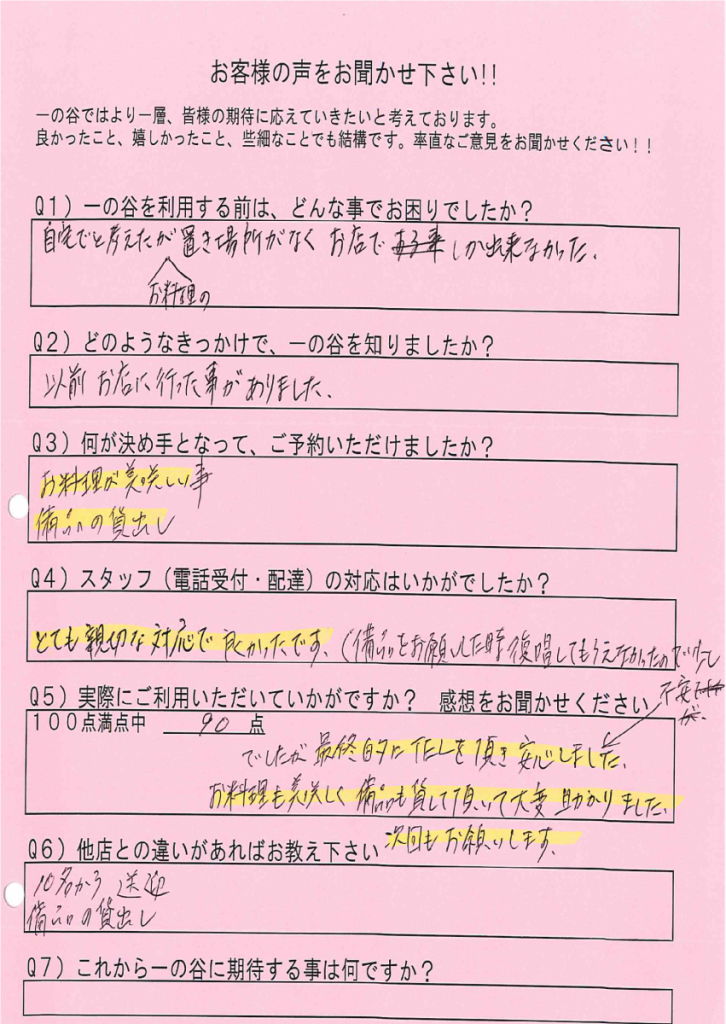 お客様の声をお聞かせ下さい!!
一の谷ではより一層、皆様の期待に応えていきたいと考えております。
良かったこと、嬉しかったこと、些細なことでも結構です。率直なご意見をお聞かせください！！
Q1）一の谷を利用する前は、どんな事でお困りでしたか？
自宅でと考えたが置き場所がなくお店でしか出来なかった。
お料理の
Q2）どのようなきっかけで、一の谷を知りましたか？
以前お店に行った事がありました。
Q3）何が決め手となって、ご予約いただけましたか？
お料理が美味しい事
備品の貸出し
Q4）スタッフ（電話受付・配達）の対応はいかがでしたか？
とても親切な対応で良かったです。（備品をお願いした時復唱してもらえなかったので
不安
が、
Q5）実際にご利用いただいていかがですか？　感想をお聞かせください
100点満点中　90　点
でしたが最終的にTELを頂き安心しました。
お料理も美味しく備品も貸して頂いて大変助かりました。
次回もお願いします。
Q6）他店との違いがあればお教え下さい
10名から送迎
備品の貸出し
Q7）これから一の谷に期待する事は何ですか？